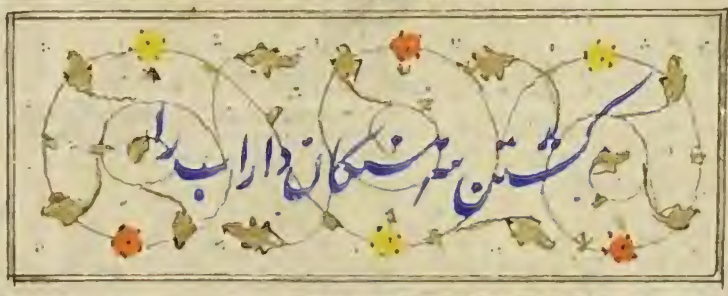 کشتن سرهنگان داراب را